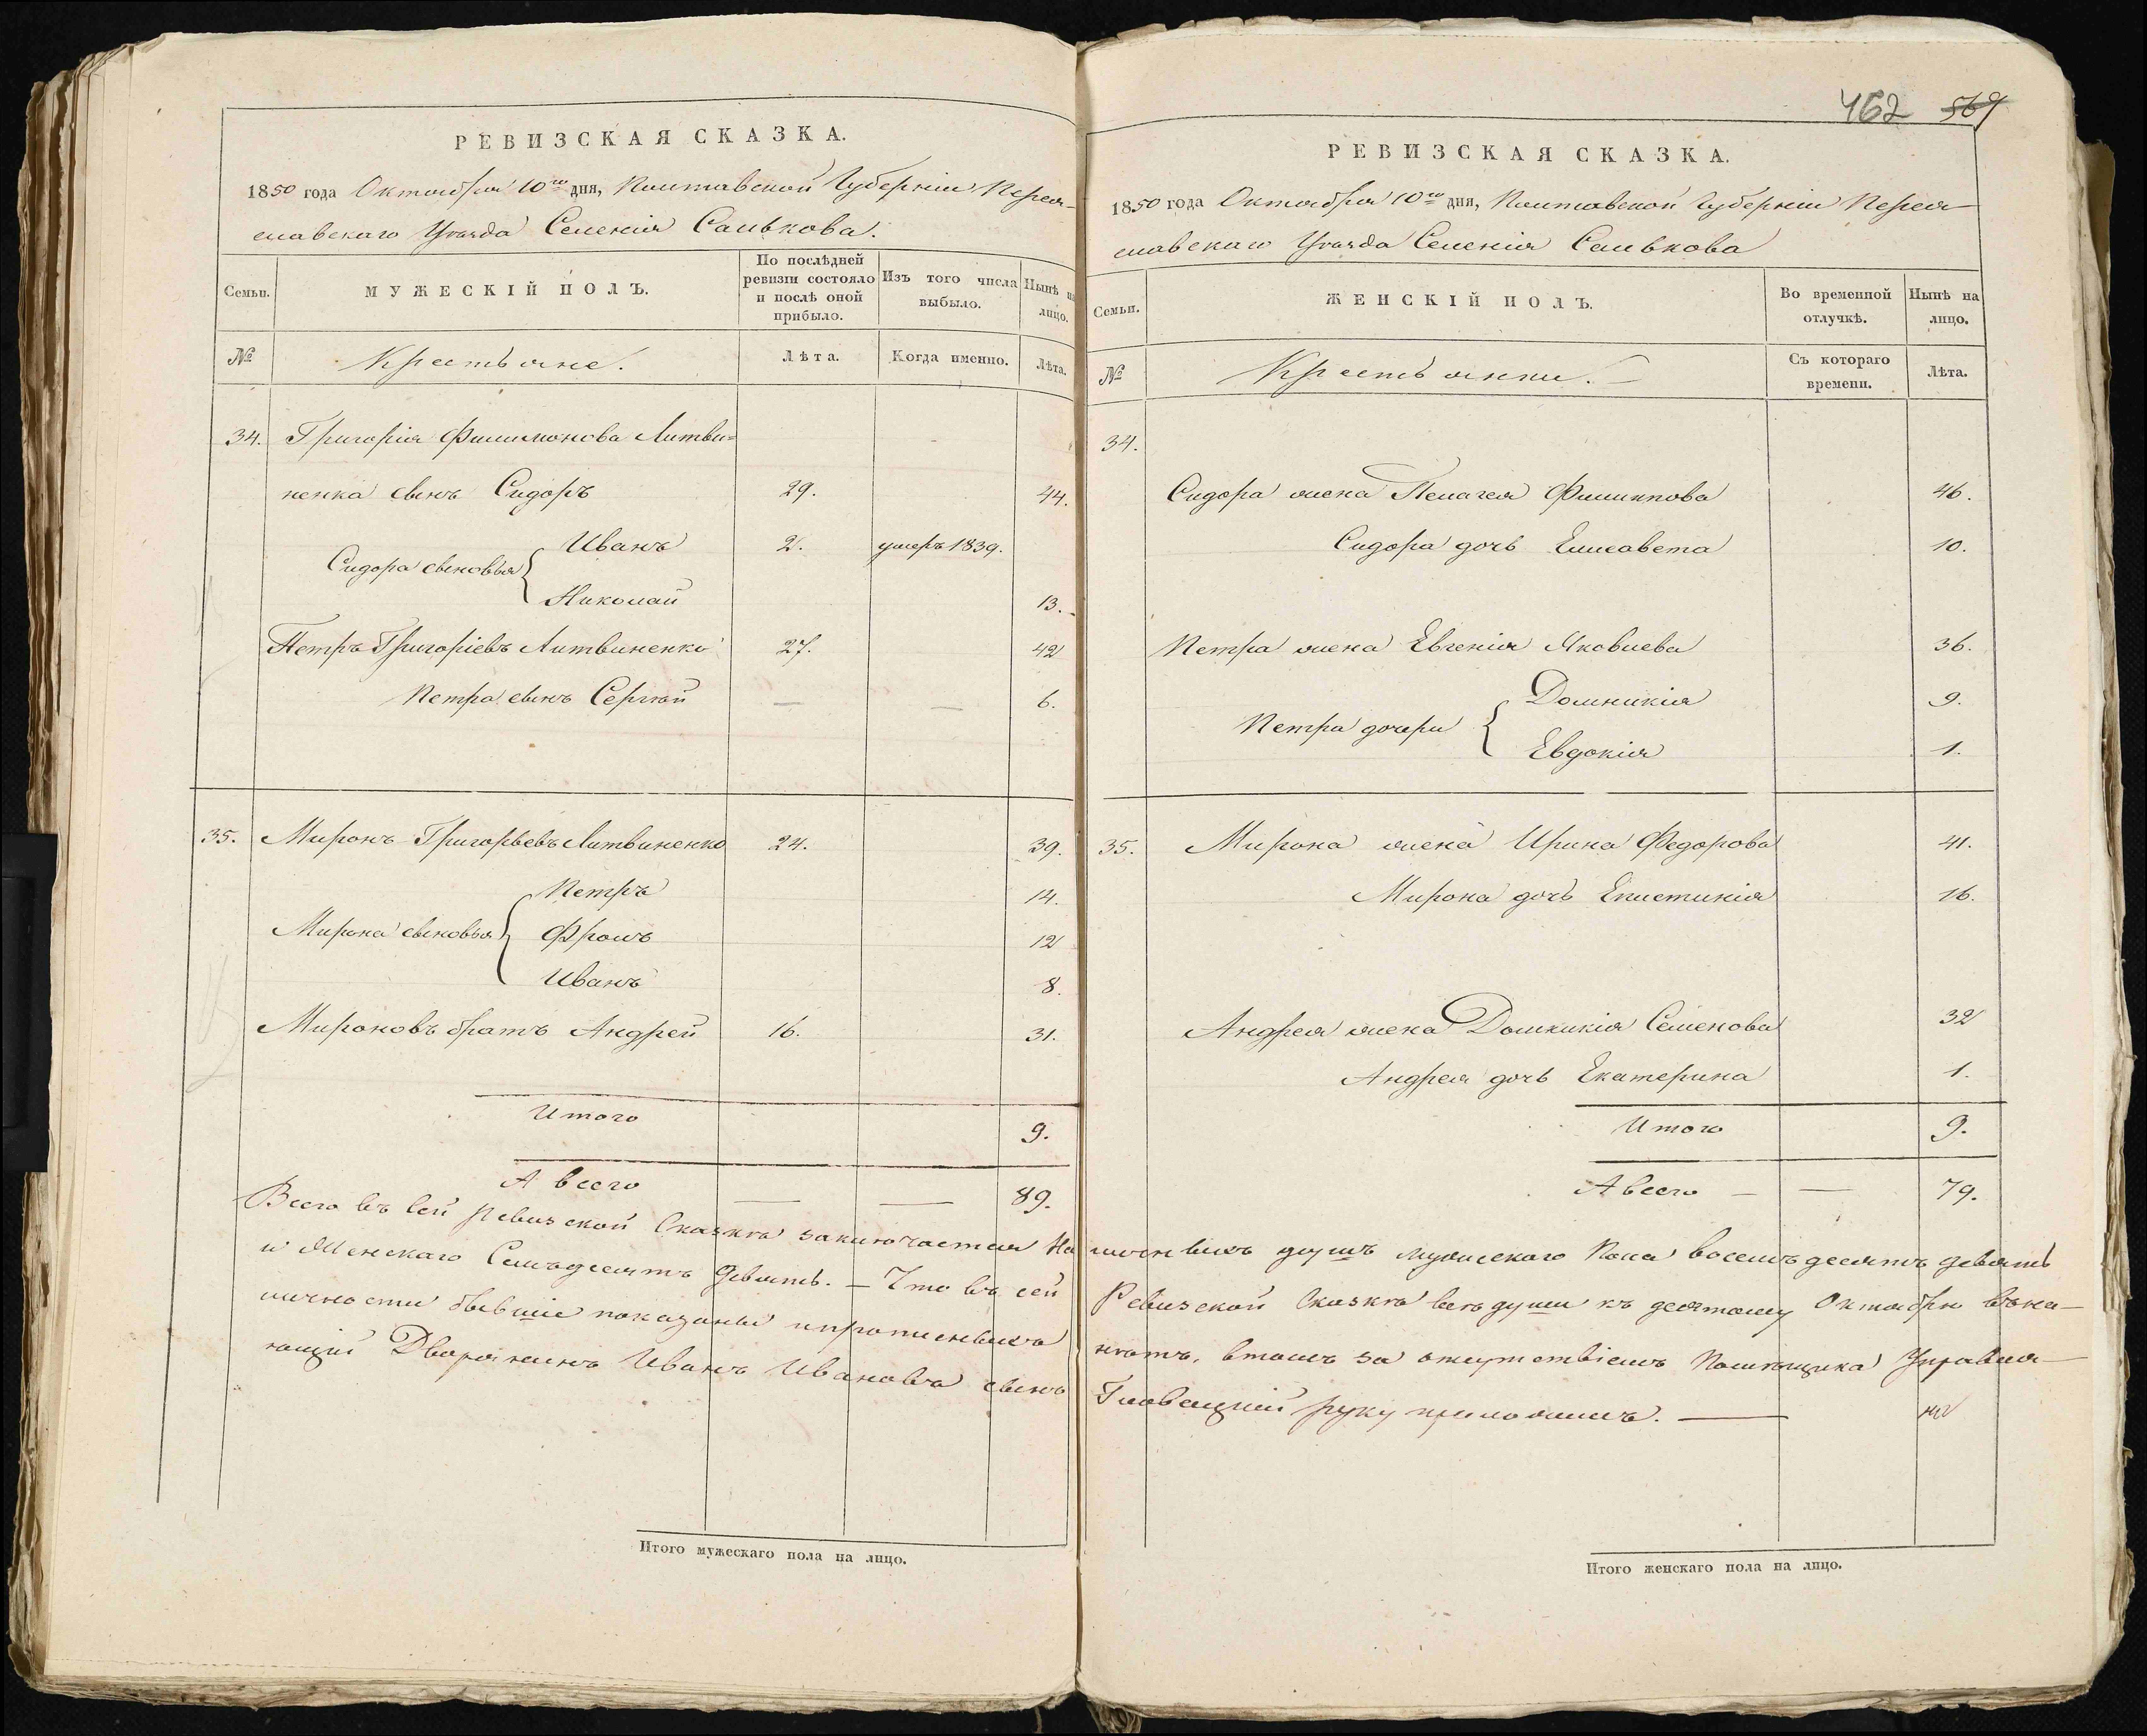 РЕВИЗСКАЯ СКАЗКА.
1850 года Октября 10го дня, Полтавской Губернiи Перея-
славскаго Уѣзда Селенiя Салькова.
Семьи.
МУЖЕСКIЙ ПОЛЪ.
По послѣдней ревизiи состояло и послѣ оной прибыло.
Изъ того числа выбыло.
Нынѣ на лицо.
№
Крестьяне.
Лѣта.
Когда именно.
Лѣта.
34. Григорiя Филимонова Литви=
ненка сынъ Сидоръ 29. 44.
Сидора сыновья Иванъ 2. умеръ 1839.
Николай 13.
Петръ Григорiевъ Литвиненко 27. 42
Петра сынъ Сергѣй — — 6.
35. Миронъ Григорьевъ Литвиненко 24. 39.
Петръ 14.
Мирона сыновья Фролъ 12
Иванъ 8.
Мироновъ братъ Андрей 16. 31.
Итого 9.
А всего — — 89.
Всего въ сей Ревизской Сказкѣ заключается На
и Женскаго Семьдесятъ девять. — Что въ сей
личности бывшiе показаны и прописныхъ
ющiй Дворянинъ Иванъ Ивановъ сынъ
Итого мужескаго пола на лицо.
462 569
РЕВИЗСКАЯ СКАЗКА.
1850 года Октября 10го дня, Полтавской Губернiи Перея-
славскаго Уѣзда Селенiя Салькова
Семьи.
ЖЕНСКIЙ ПОЛЪ.
Во временной отлучкѣ.
Нынѣ на лицо.
№
Крестьянки. —
Съ котораго времени.
Лѣта.
34.
Сидора жена Пелагея Филиппова 46.
Сидора дочь Елисавета 10.
Петра жена Евгенiя Яковлева 36.
Петра дочери Домникiя 9.
Евдокiя 1.
35. Мирона жена Ирина Федорова 41.
Мирона дочь Епистимiя 16.
Андрея жена Домникiя Семенова 32
Андрея дочь Екатерина 1.
Итого 9.
А всего — — 79.
личныхъ душъ мужескаго Пола восемьдесятъ девять
Ревизской Сказкѣ всѣ души къ десятому Октябрю въ на-
нѣтъ, въ томъ за отсутствiемъ Помѣщика Управля-
Гловацкiй руку приложилъ. —
Итого женскаго пола на лицо.